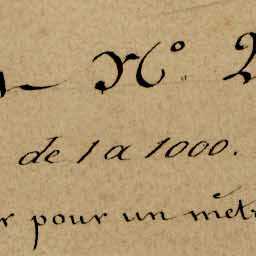 N° 2
de 1 a 1000.
r pour un metr